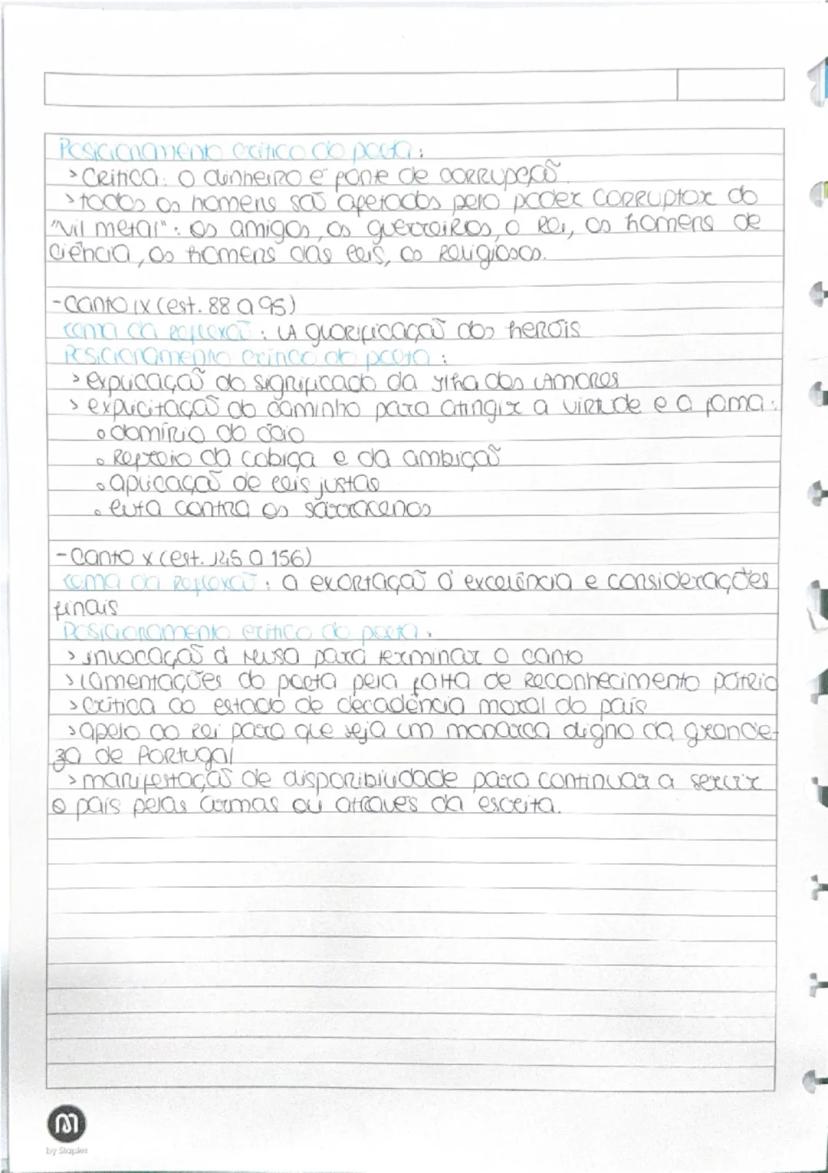 Posicionamento crítico do poeta:
> Crítica: o dinheiro é fonte de corrupção
> todos os homens são afetados pelo poder corruptor do
"vil metal": os amigos, os guerreiros, o Rei, os homens de
ciência, os homens das leis, os religiosos.
- Canto IX (est. 88 a 95)
tema da reflexão: A glorificação dos heróis
Posicionamento crítico do poeta:
> explicação do significado da Ilha dos Amores
> explicitação do caminho para atingir a virtude e a fama:
o domínio do ócio
o repúdio da cobiça e da ambição
o aplicação de leis justas
o luta contra os sarracenos
- Canto X (est. 145 a 156)
tema da reflexão: a exortação à excelência e considerações
finais
Posicionamento crítico do poeta:
> invocação à Musa para terminar o canto
> lamentações do poeta pela falta de reconhecimento pátrio
> crítica ao estado de decadência moral do país
> apelo ao Rei para que seja um monarca digno da grande-
za de Portugal
> manifestação de disponibilidade para continuar a servir
o país pelas armas ou através da escrita.
M
by Staples